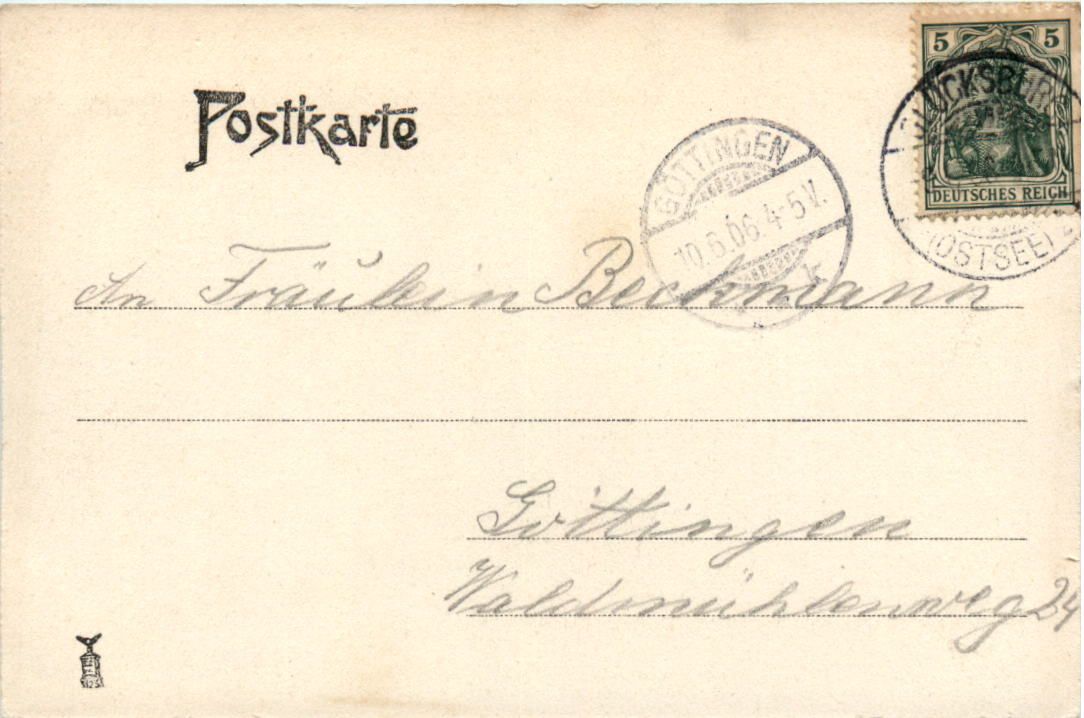 Postkarte
5 5
DEUTSCHES REICH
GLÜCKSBURG
(OSTSEE)
GÖTTINGEN
10.6.06.4-5V.
An Fräulein Beckmann
Göttingen
Waldmühlenweg 24